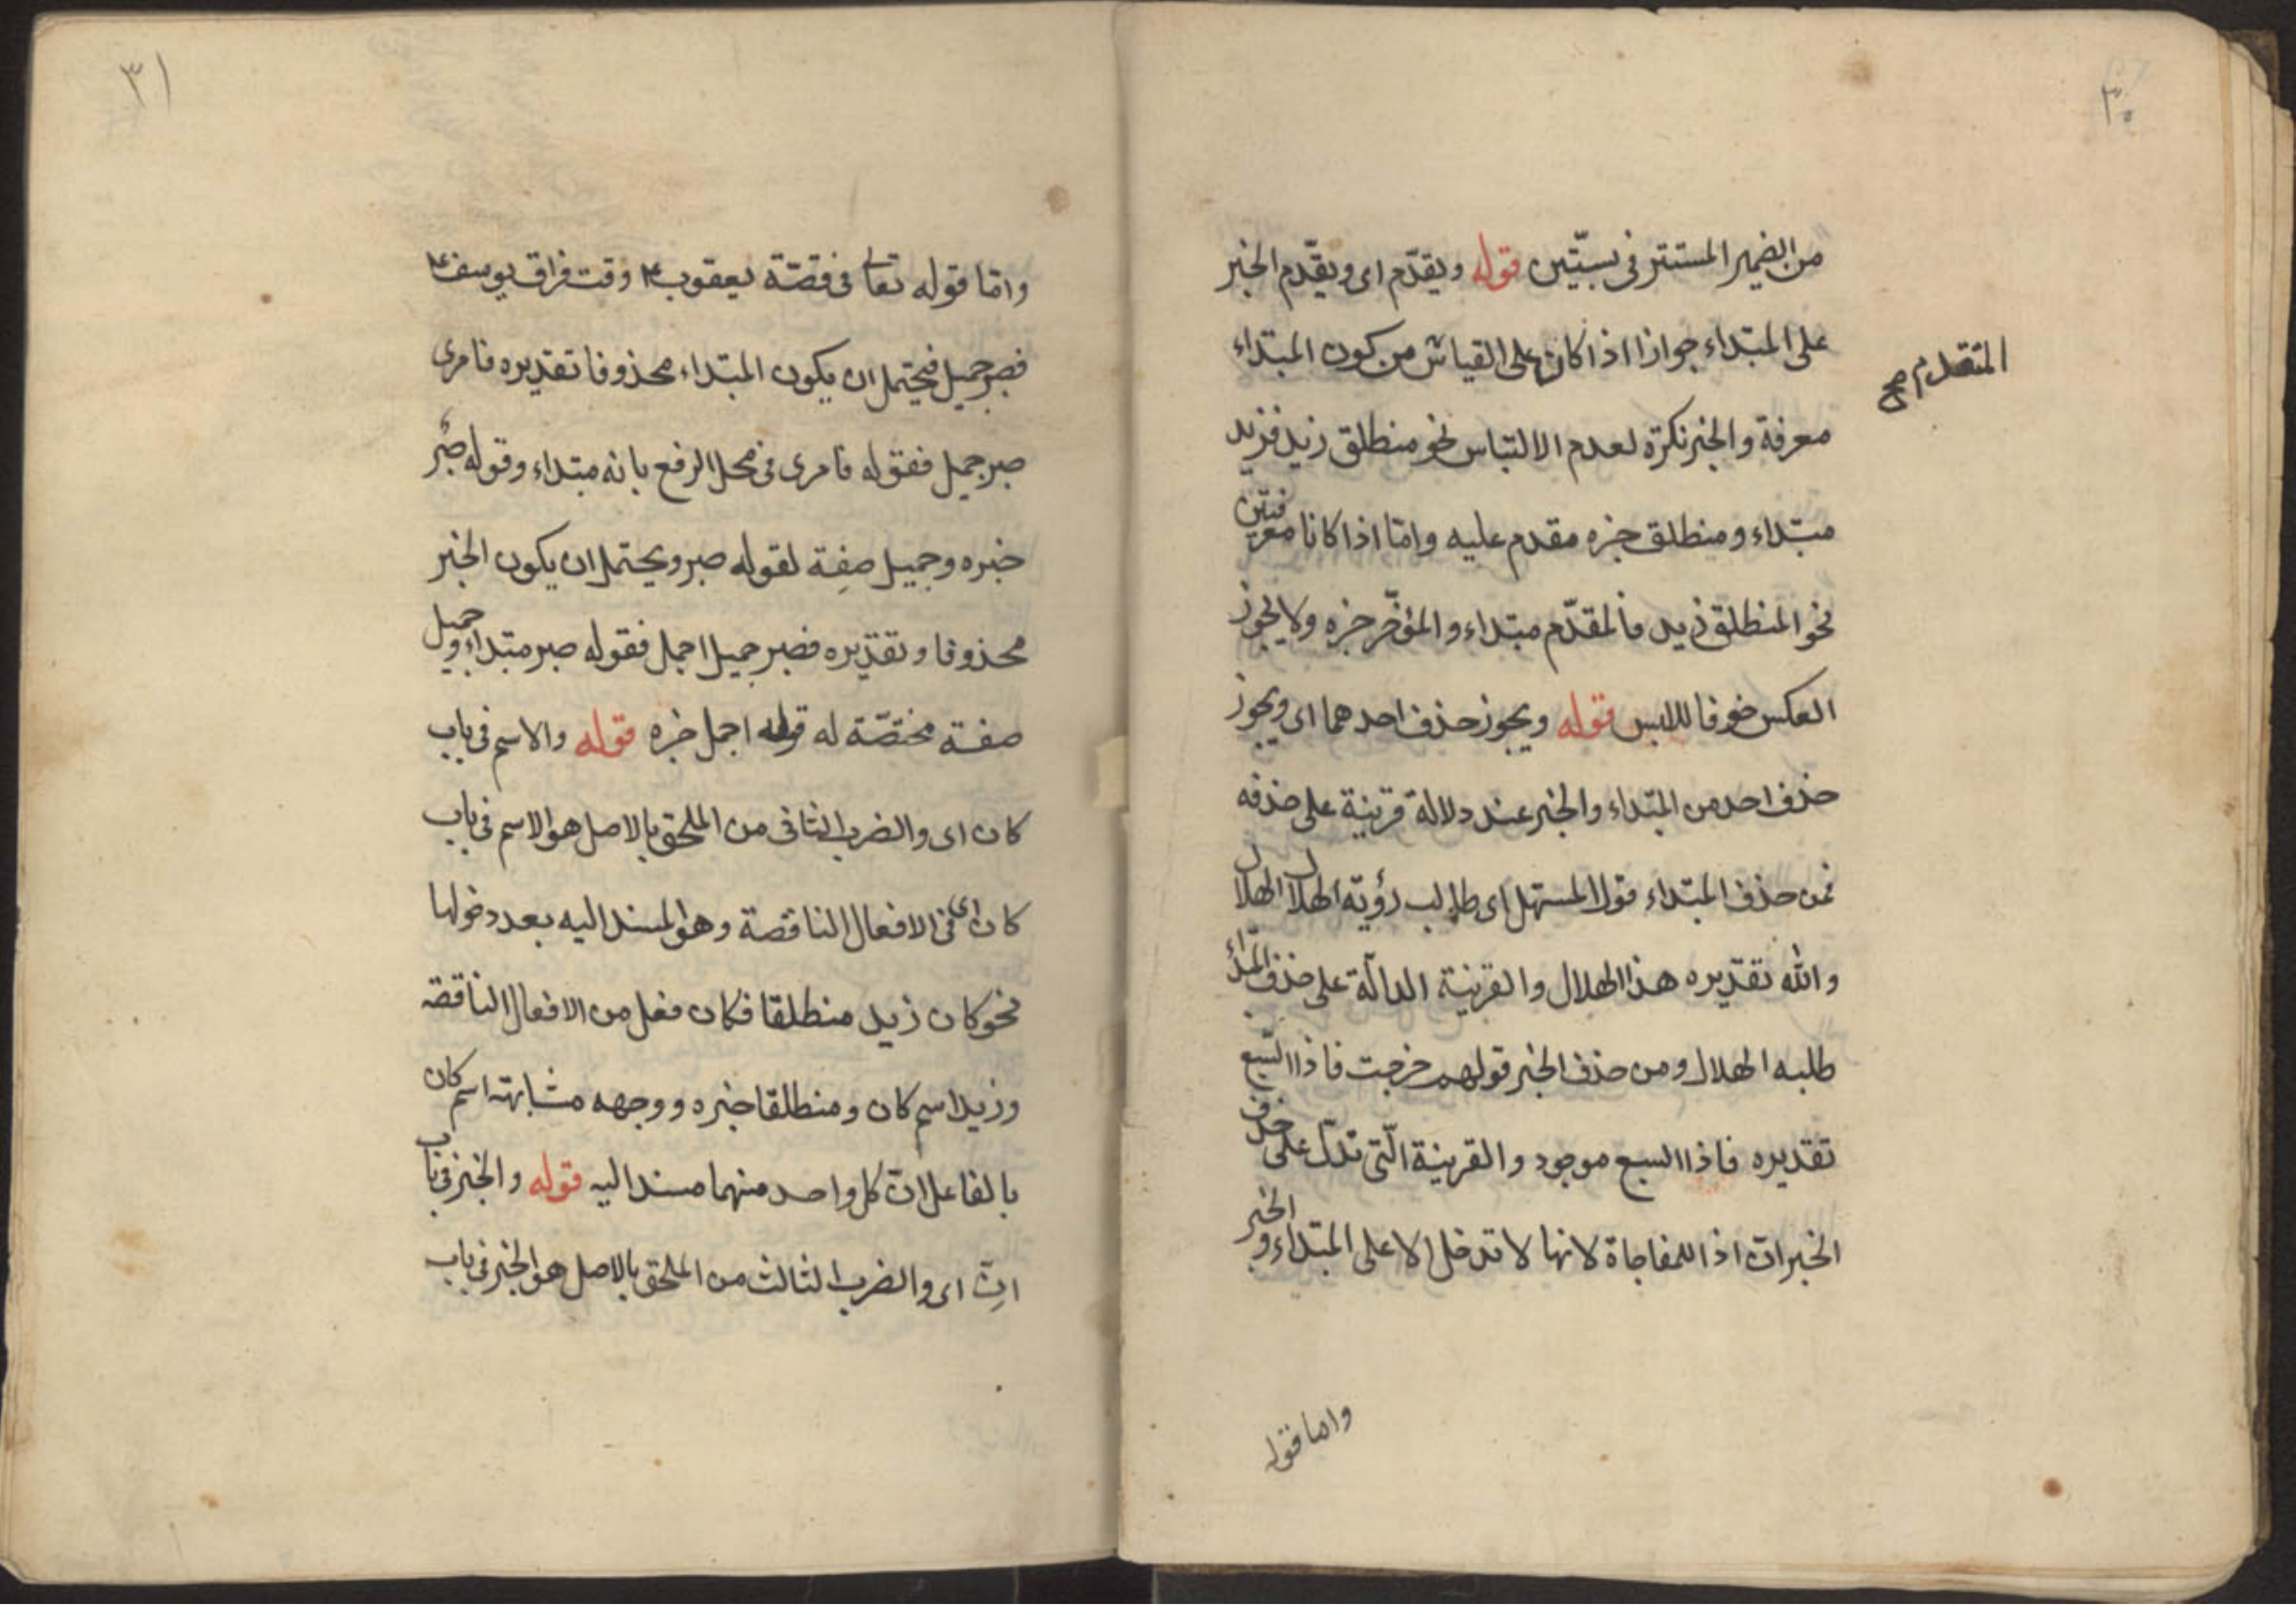 ٣٠
من الضمير المستتر فى بستّين قوله ويقدّم اى ويقدّم الخبر
على المبتداء جوازا اذا كان على القياس من كون المبتداء
المتقدم صح
معرفة والخبر نكرة لعدم الالتباس نحو منطلق زيد فزيد
مبتداء ومنطلق خبره مقدم عليه وامّا اذا كانا معرفتين
نحو المنطلق زيد فالمقدّم مبتداء والمؤخّر خبره ولا يجوز
العكس خوفا للبس قوله ويجوز حذف احدهما اى ويجوز
حذف احد من المبتداء والخبر عند دلالة قرينة على حذفه
فمن حذف المبتداء قول المستهل اى طالب رؤية الهلال الهلال
والله تقديره هذا الهلال والقرينة الدالّة على حذف المبتداء
طلبه الهلال ومن حذف الخبر قولهم خرجت فاذا السبع
تقديره فاذا السبع موجود والقرينة الّتى تدلّ على حذف
الخبر انّ اذا للمفاجاة لانها لا تدخل الا على المبتداء والخبر
واما قوله
٣١
وامّا قوله تعالى فى قصّة يعقوب ع وقت فراق يوسف ع
فصبر جميل فيحتمل ان يكون المبتداء محذوفا تقديره فامرى
صبر جميل فقوله فامرى فى محل الرفع بانه مبتداء وقوله صبر
خبره وجميل صفة لقوله صبر ويحتمل ان يكون الخبر
محذوفا وتقديره فصبر جميل اجمل فقوله صبر مبتداء وجميل
صفة مختصّة له قوله اجمل خبره قوله والاسم فى باب
كان اى والضرب الثانى من الملحق بالاصل هو الاسم فى باب
كان اى فى الافعال الناقصة وهو المسند اليه بعد دخولها
نحو كان زيد منطلقا فكان فعل من الافعال الناقصة
وزيد اسم كان ومنطلقا خبره ووجهه مشابهته اسم كان
بالفاعل انّ كل واحد منهما مسند اليه قوله والخبر فى باب
انّ اى والضرب الثالث من الملحق بالاصل هو الخبر فى باب